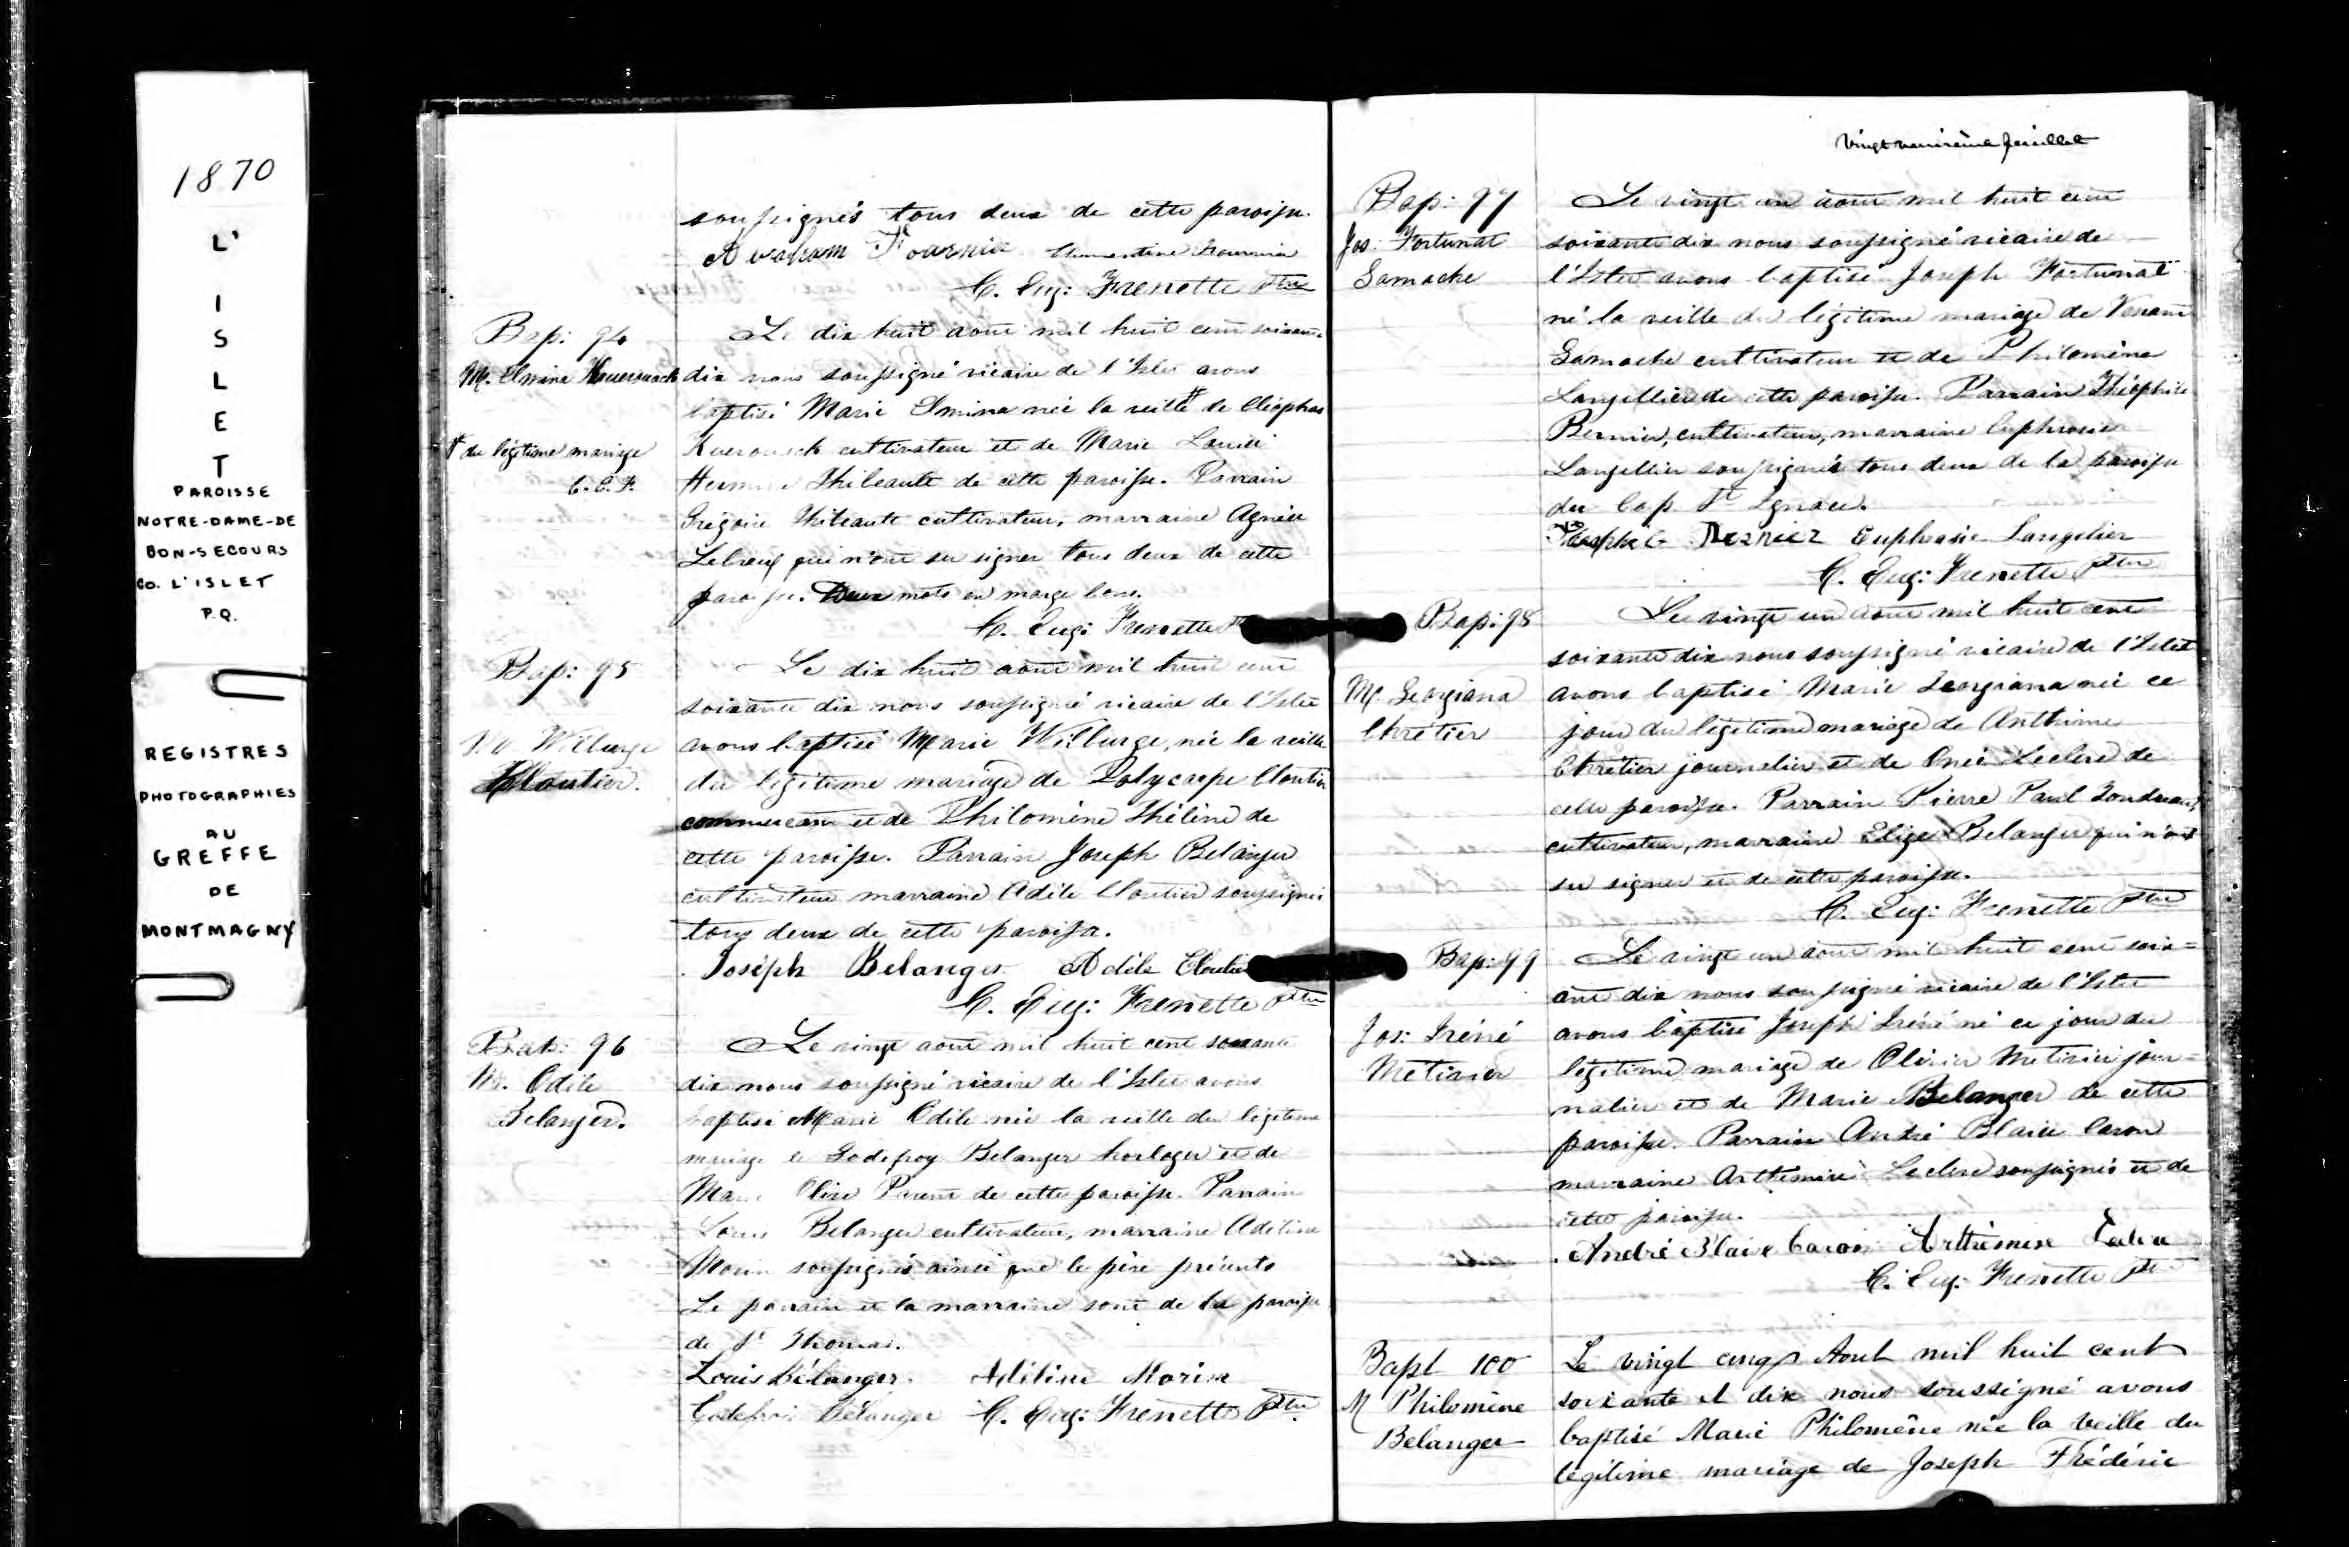 1870
L'
I
S
L
E
T
PAROISSE
NOTRE-DAME-DE
BON-SECOURS
Co. L'ISLET
P.Q.
REGISTRES
PHOTOGRAPHIES
AU
GREFFE
DE
MONTMAGNY
soussignés tous deux de cette paroisse.
Fournier
C. Eug: Frenette Ptre
Bap: 94
M. Elmina
† du légitime mariage
C.E.F.
Le dix huit aout mil huit cent soixante
dix nous soussigné vicaire de l'Islet avons
baptisé Marie Elmina née la veille † de Cléophas
cultivateur et de Marie
de cette paroisse. Parrain
Grégoire cultivateur, marraine Agnès
qui n'ont su signer tous deux de cette
paroisse. mots en marge bons.
C. Eug: Frenette
Bap: 95
Wilburge
Cloutier.
Le dix huit aout mil huit cent
soixante dix nous soussigné vicaire de l'Islet
avons baptisé Marie Wilburge, née la veille
du légitime mariage de Polycarpe Cloutier
commercant et de Philomène de
cette paroisse. Parrain Joseph Belanger
cultivateur marraine Adèle Cloutier soussignés
tous deux de cette paroisse.
Joseph Belanger Adèle Cloutier
C. Eug: Frenette Ptre
Bap: 96
M. Odile
Belanger.
Le vingt aout mil huit cent soixante
dix nous soussigné vicaire de l'Islet avons
baptisé Marie Odile née la veille du légitime
mariage de Godefroy Belanger horloger et de
de cette paroisse. Parrain
Louis Belanger cultivateur, marraine Adeline
Morin soussignés ainsi que le père présents
Le parrain et la marraine sont de la paroisse
de St Thomas.
Louis Bélanger. Adéline Morin
Godefroi Bélanger C. Eug: Frenette Ptre
feuillet
Bap: 97
Jos: Fortunat
Gamache
Le vingt un aout mil huit cent
soixante dix nous soussigné vicaire de
l'Islet avons baptisé Joseph Fortunat
né la veille du légitime mariage de
Gamache cultivateur et de Philomène
Langellier de cette paroisse. Parrain Théophile
Bernier, cultivateur, marraine Euphrosie
Langellier soussignés tous deux de la paroisse
du Cap St Ignace.
Bernier Euphrasie Langelier
C. Eug: Frenette Ptre
Bap: 98
M. Georgiana
Chrétier
Le vingt un aout mil huit cent
soixante dix nous soussigné vicaire de l'Islet
avons baptisé Marie Georgiana née ce
jour du légitime mariage de Anthime
Chrétier journalier et de Leclerc de
cette paroisse. Parrain Pierre Paul
cultivateur, marraine Belanger qui n'ont
su signer et de cette paroisse.
C. Eug: Frenette Ptre
Bap: 99
Jos: Iréné
Metivier
Le vingt un aout mil huit cent soix=
ante dix nous soussigné vicaire de l'Islet
avons baptisé Joseph Iréné né ce jour du
légitime mariage de Olivier Metivier jour=
nalier et de Marie Belanger de cette
paroisse. Parrain André Blaise Caron
marraine Arthemise Leclerc soussignés et de
cette paroisse.
André Blaise Caron Arthémise
C. Eug: Frenette Ptre
Bapt 100
M Philomène
Belanger
Le vingt cinq Aout mil huit cent
soixante et dix nous soussigné avons
baptisé Marie Philomène née la veille du
légitime mariage de Joseph Frédéric